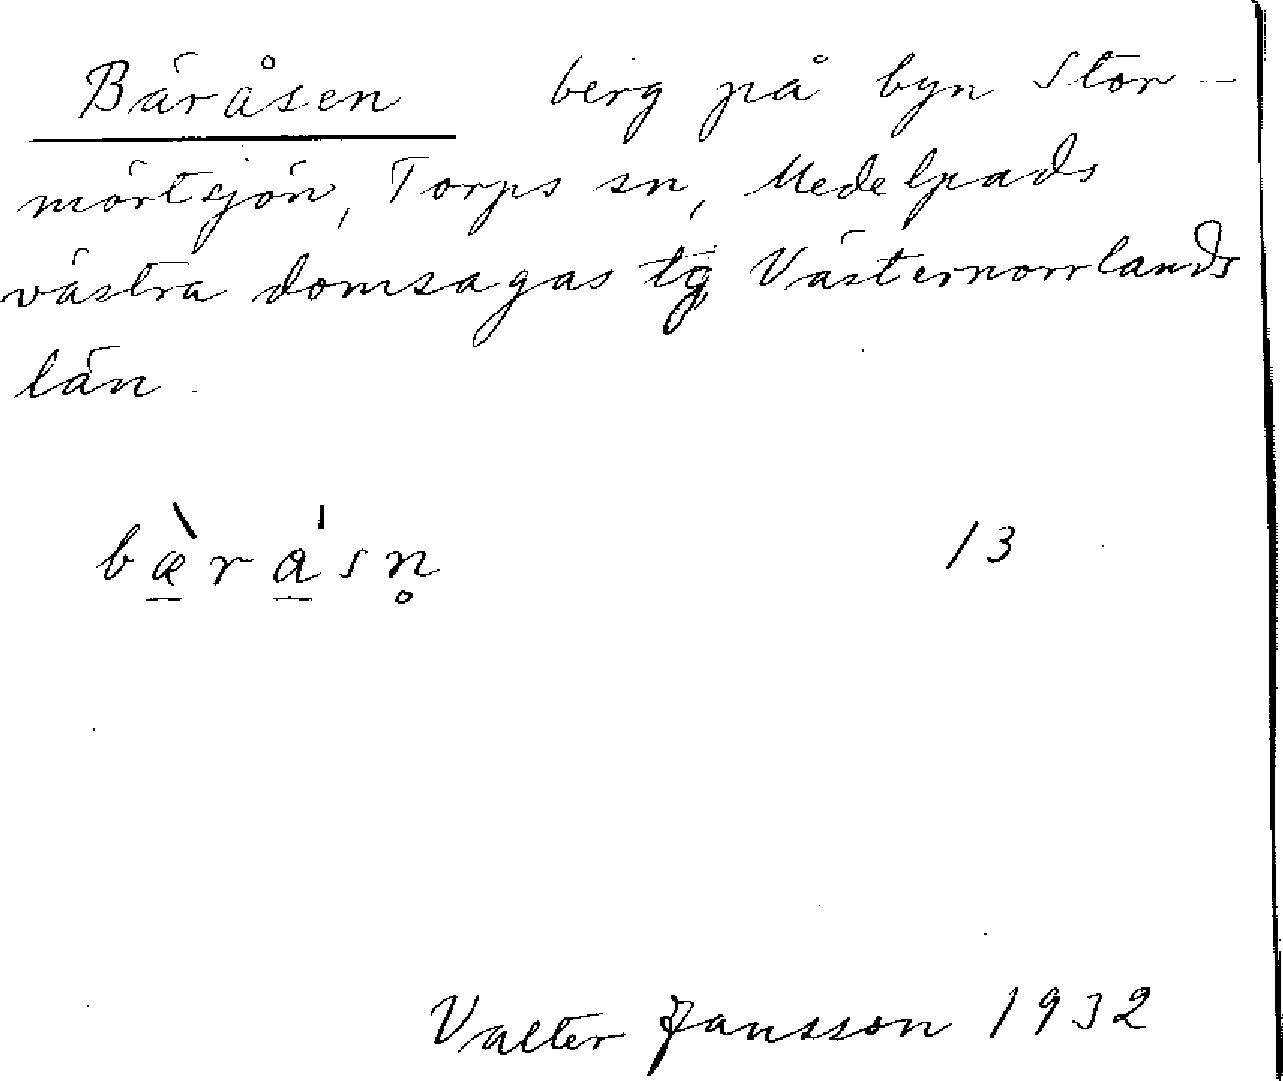 Bäråsen berg på byn Stor-
mörtsjön, Torps sn, Medelpads
västra domsagas tg Västernorrlands
län.
bæ̱̀ra̱̍sn̥ 13
Valter Jansson 1932